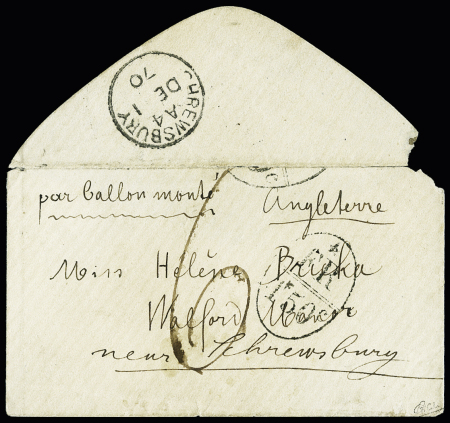 SHREWSBURY
A4
DE 1
70
par ballon monté
Angleterre
Miss Hélène Bricka
Walford Manor
near Shrewsbury
6